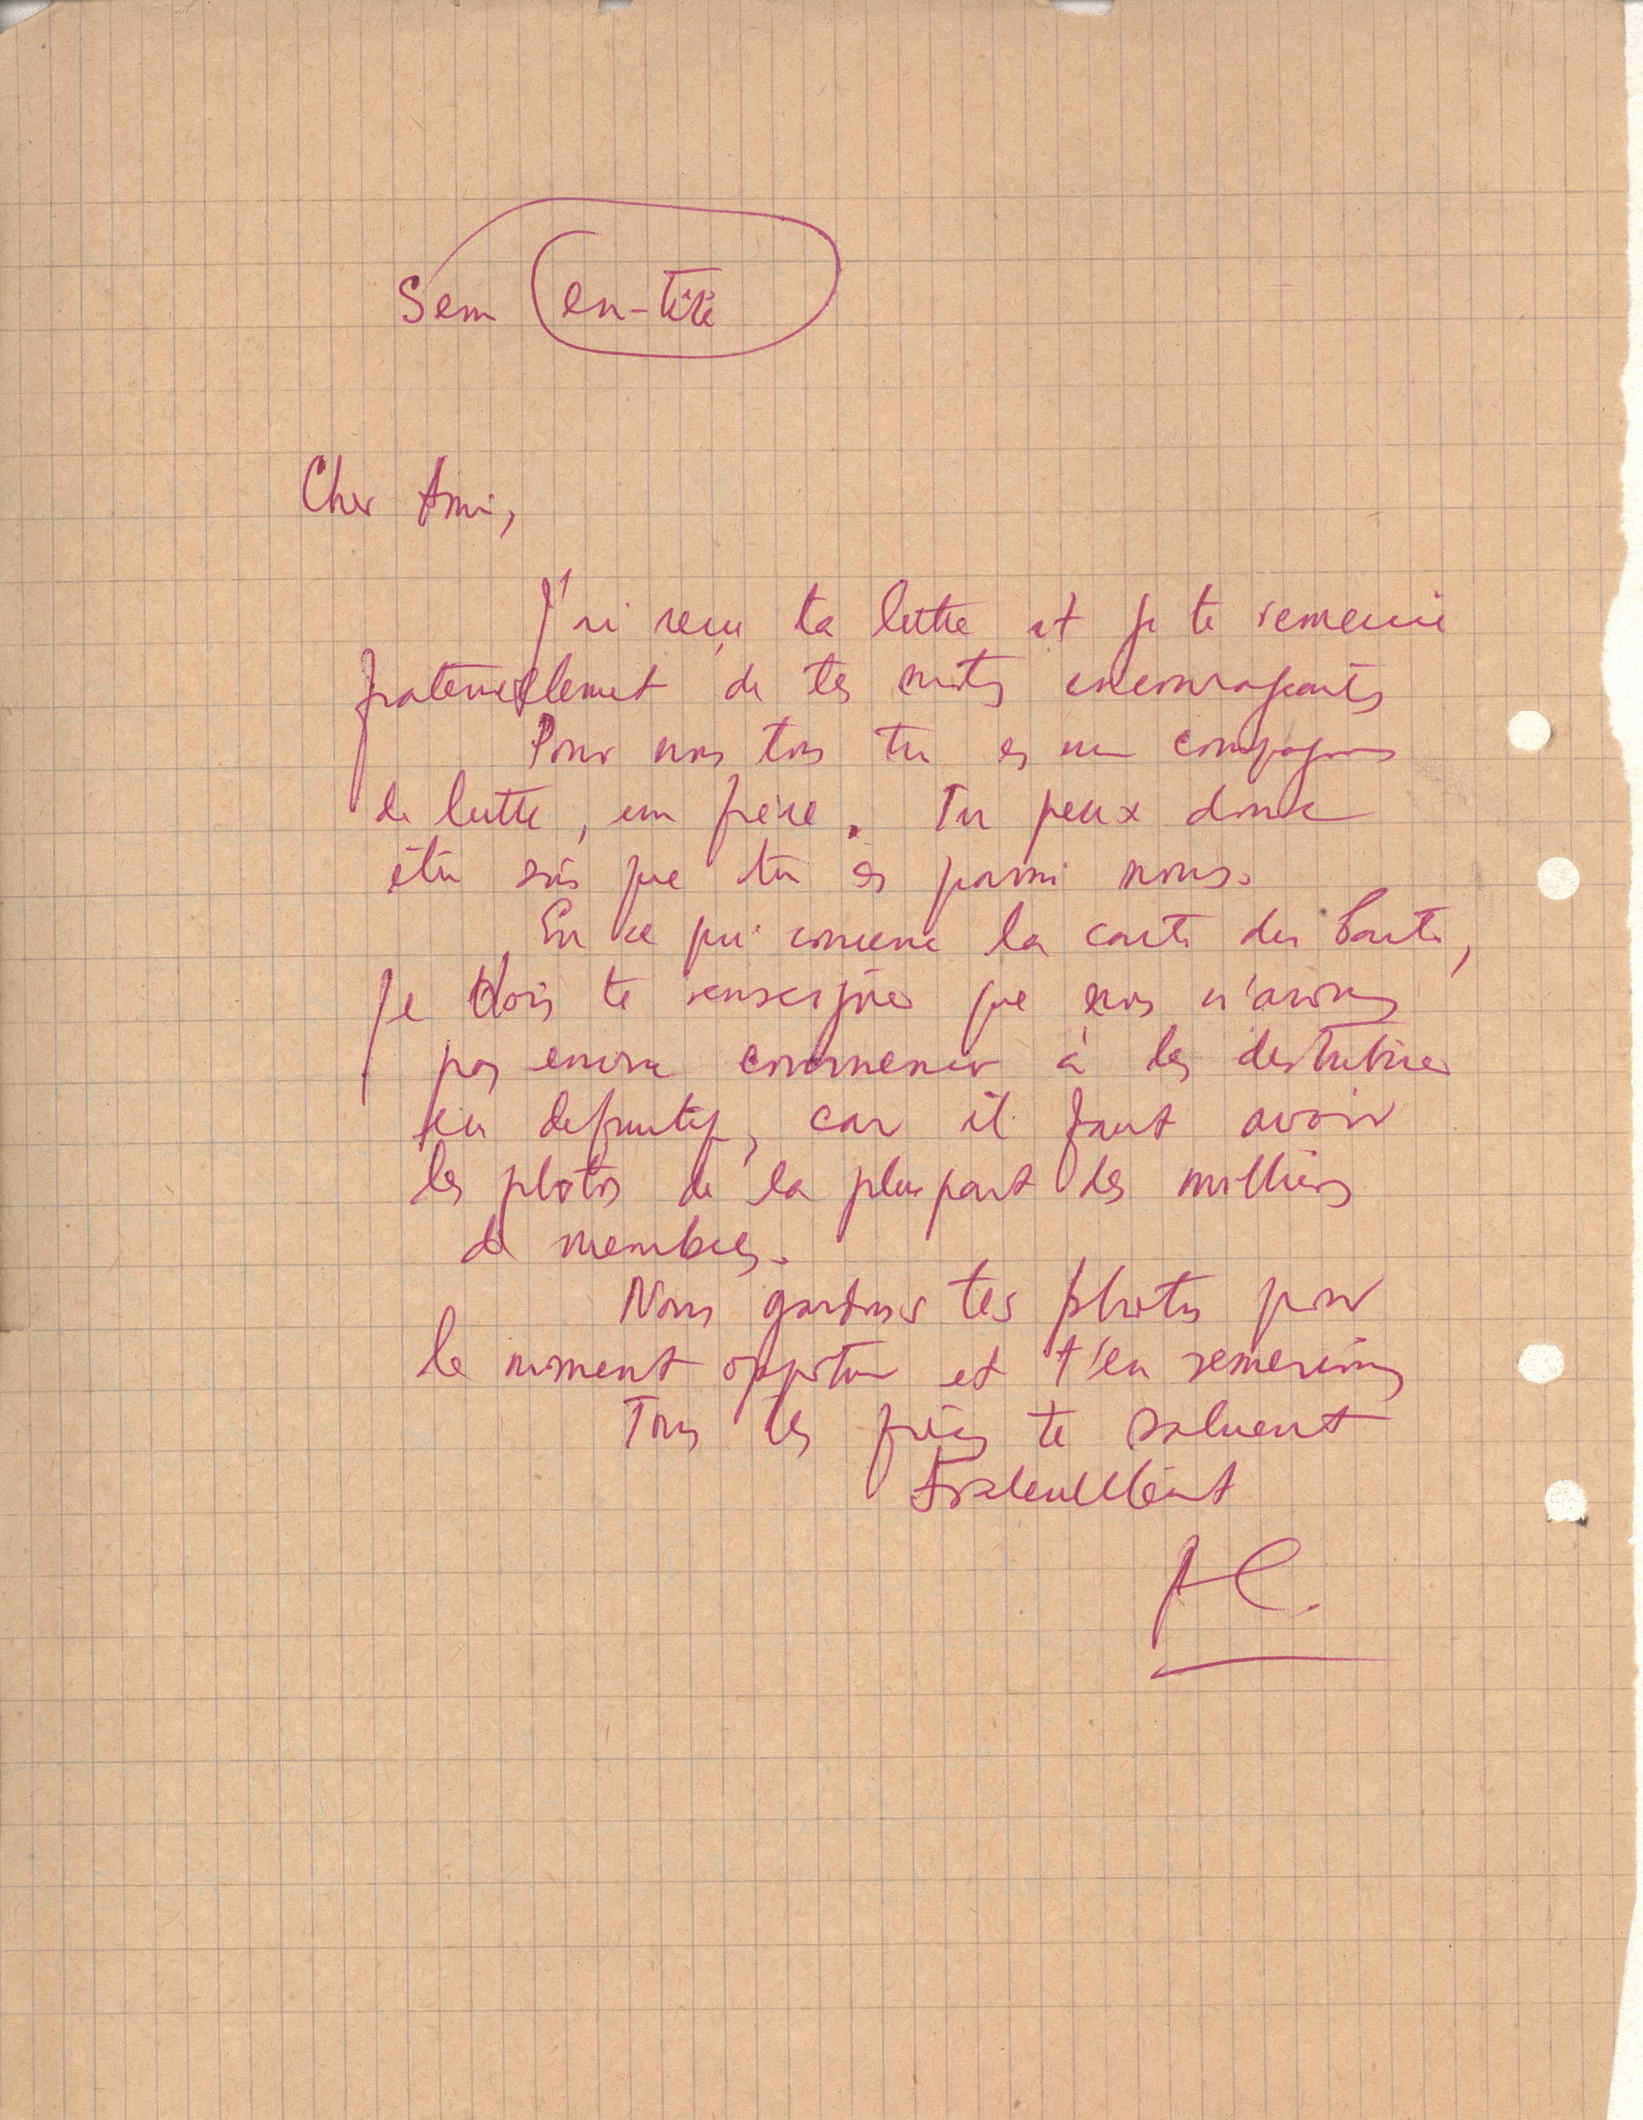 Sem en-tête
Cher Ami,
J'ai reçu ta lettre et je te remercie
fraternellement de tes mots encourageants
Pour nous tous tu es un compagnon
de lutte, un frère. Tu peux donc
être sûr que tu es parmi nous.
En ce qui concerne la carte du Parti,
je dois te renseigner que nous n'avons
pas encore commencer à les distribuer
en definitif, car il faut avoir
les photos de la plupart des milliers
de membres.
Nous gardons tes photos pour
le moment opportun et t'en remercions
Tous les frères te saluent
Fraternellement
AC.